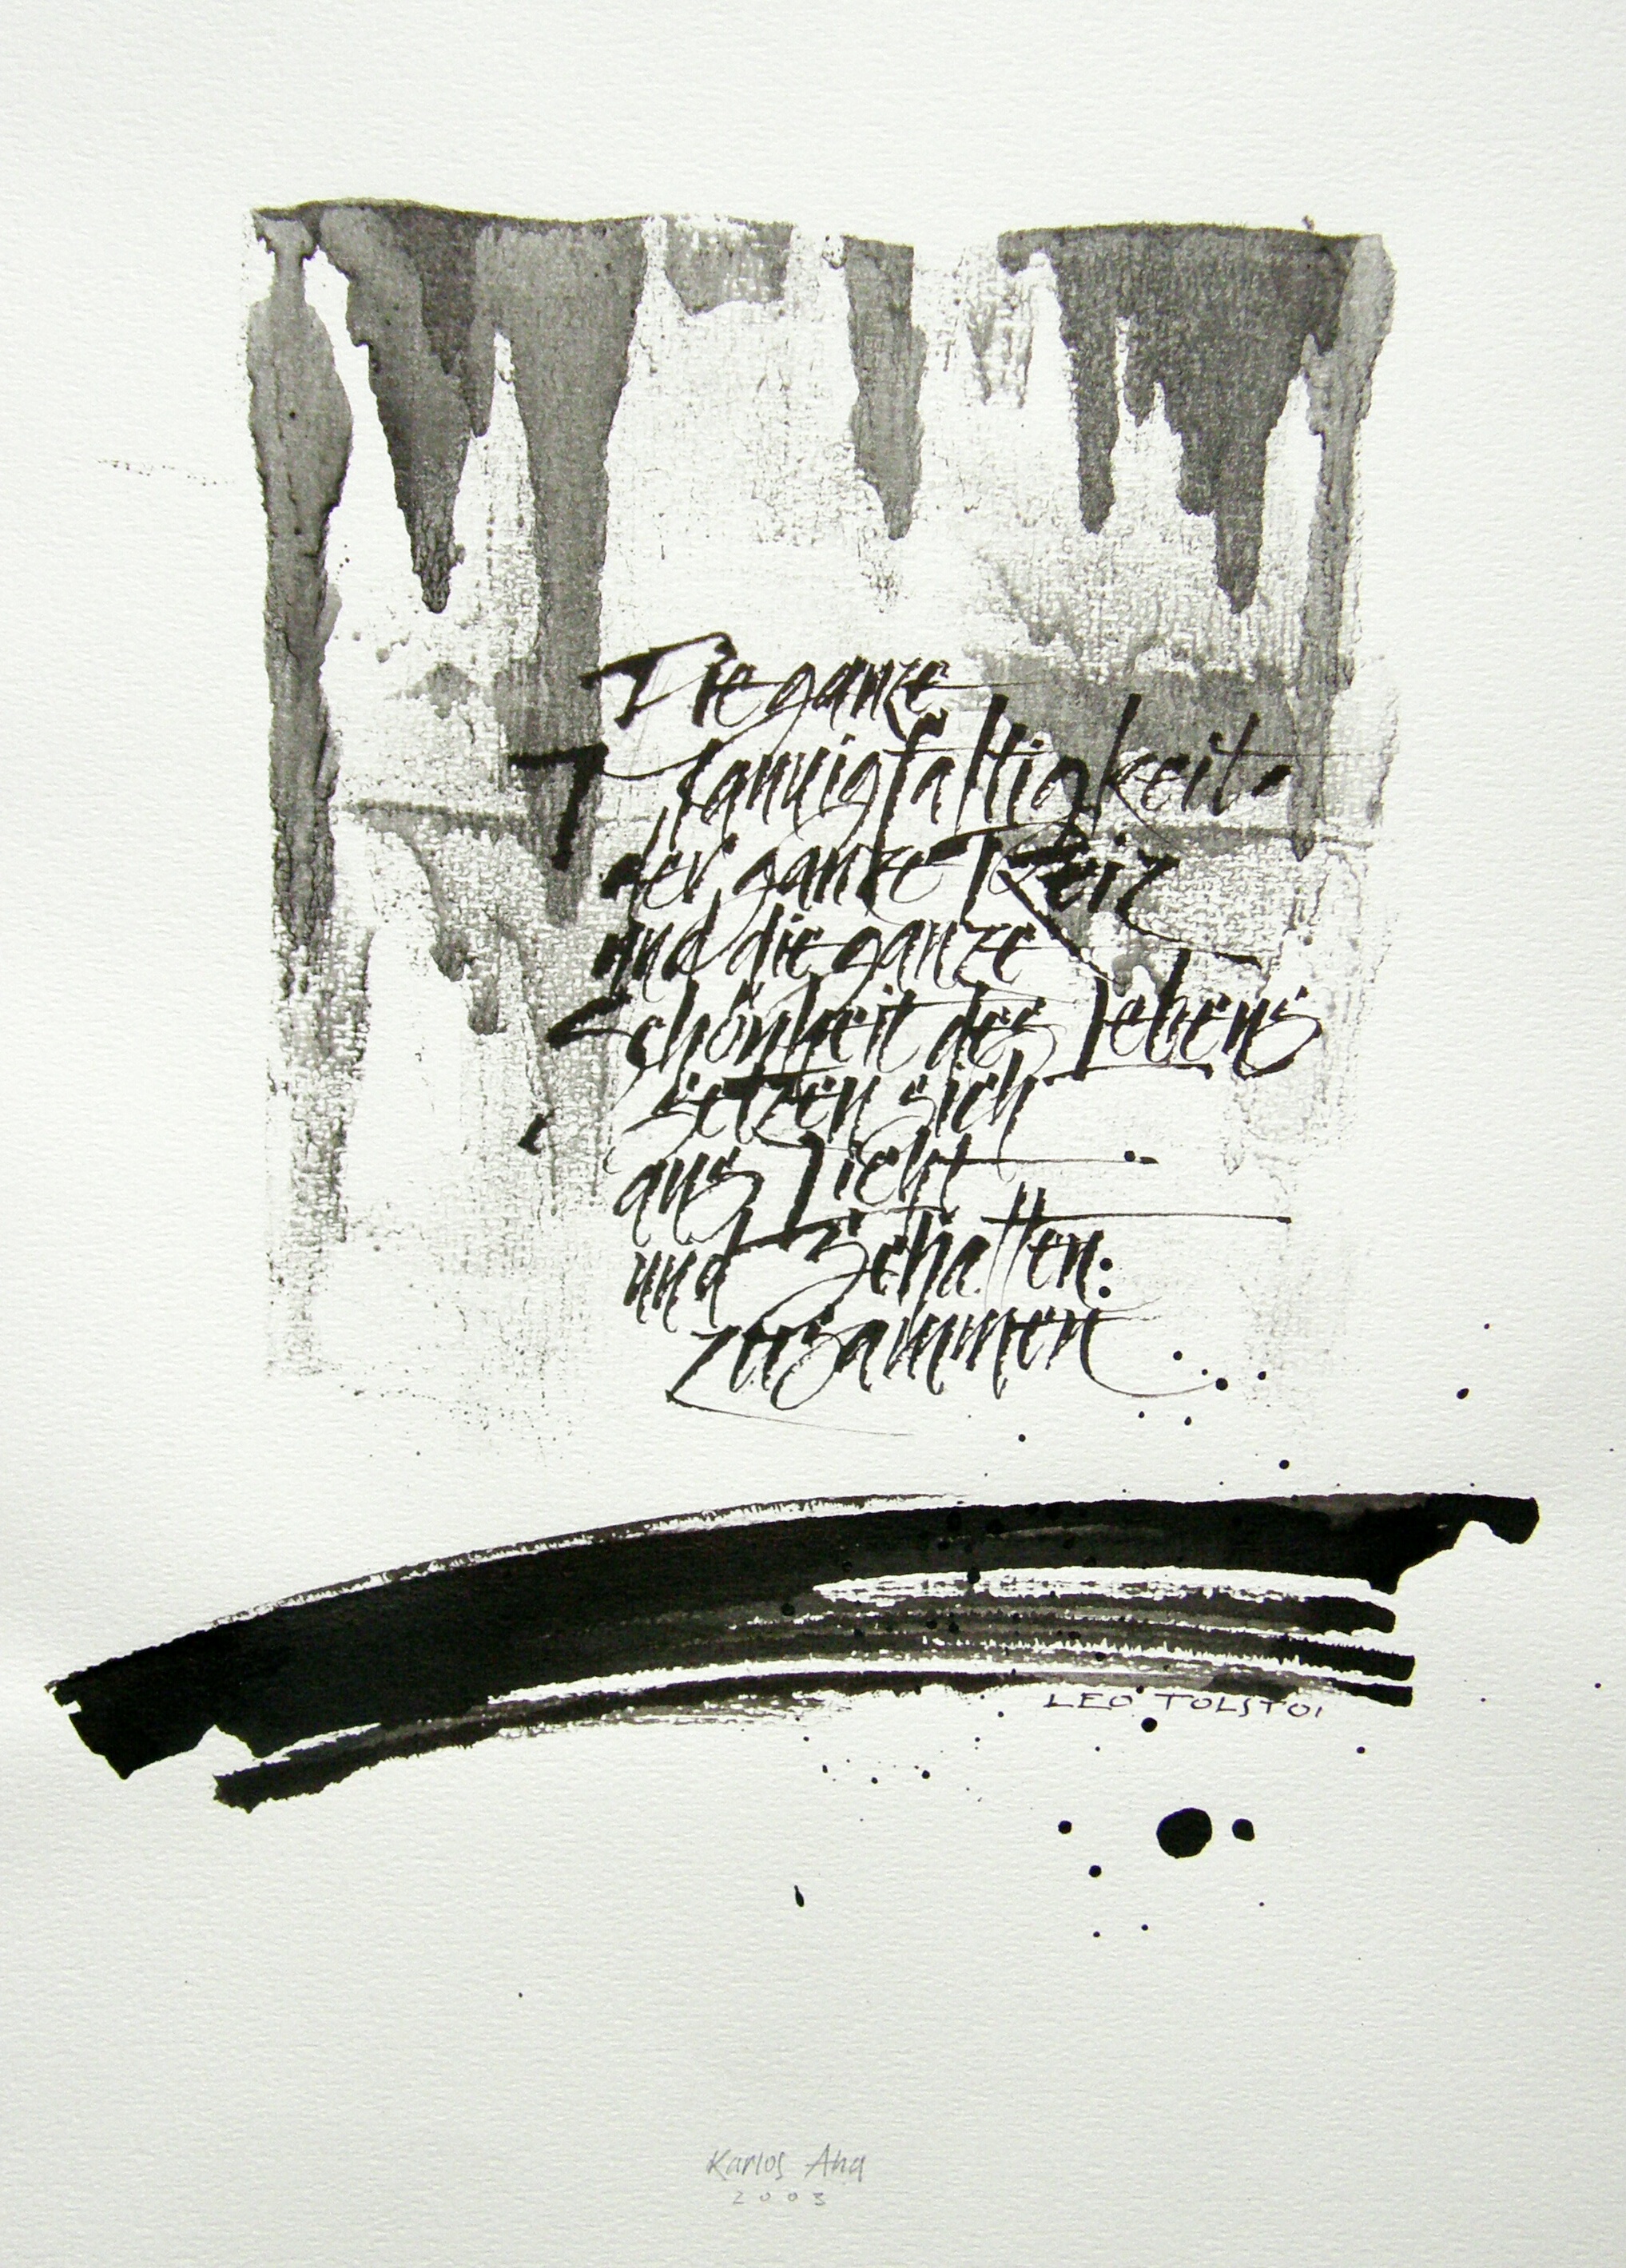 Die ganze
Mannigfaltigkeit.
der ganze Reiz
und die ganze
Schönheit des Lebens
setzen sich
aus Licht
und Schatten:
zusammen
LEO TOLSTOI
Karlos Aha
2003